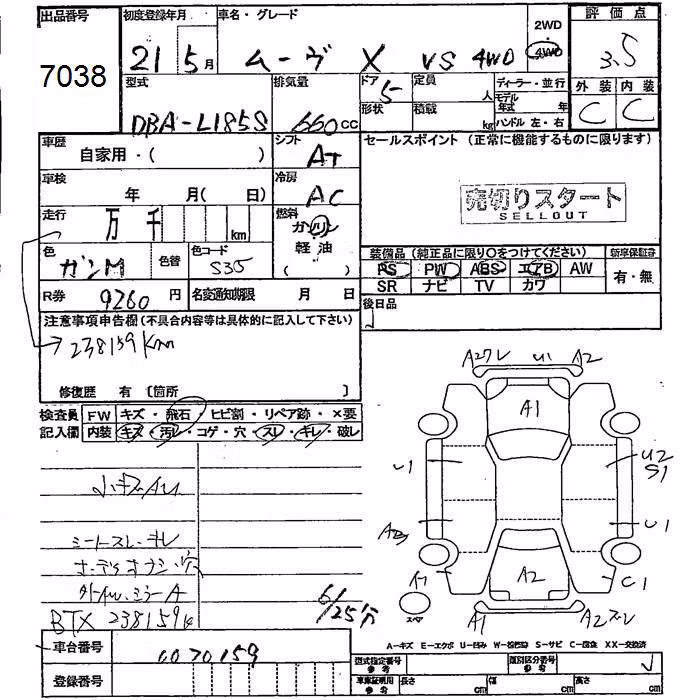 出品番号
7038
初度登録年月
21 5月
車名・グレード
ムーヴ X VS 4WD
2WD
・
4WD
評価点
3.5
外装 内装
C C
型式
DBA-L185S
排気量
660cc
ドア
5
形状
定員
人
積載
kg
ディーラー・並行
モデル
年式 年
ハンドル 左・右
車歴
自家用・( )
シフト
AT
車検
年 月( 日)
冷房
AC
走行
万 千 km
燃料
ガソリン
軽油
( )
色
ガンM
色替
色コード
S35
R券
9260 円
名変通知期限 月 日
セールスポイント (正常に機能するものに限ります)
売切りスタート
SELLOUT
装備品(純正品に限り○をつけてください)
PS PW ABS エアB AW
SR ナビ TV カワ
新車保証書
有・無
後日品
注意事項申告欄(不具合内容等は具体的に記入して下さい)
238159Km
修復歴 有 〔箇所 〕
検査員
記入欄
FW キズ・飛石・ヒビ割・リペア跡・×要
内装 キズ・汚レ・コゲ・穴・スレ・キレ・破レ
小キズAU
シートスレ・キレ
オーディオナシ・穴
BTX 238159k
6/25
車台番号
0070159
登録番号
A2 U1 A2
A1
U1
U2
S1
U1
A2
C1
スペア
A1
A2
A-キズ E-エクボ U-凹み W-補修跡 S-サビ C-腐食 XX-交換済
型式指定番号
参考
類別区分番号
参考
車庫証明用
参考
長さ 幅 高さ
cm cm cm